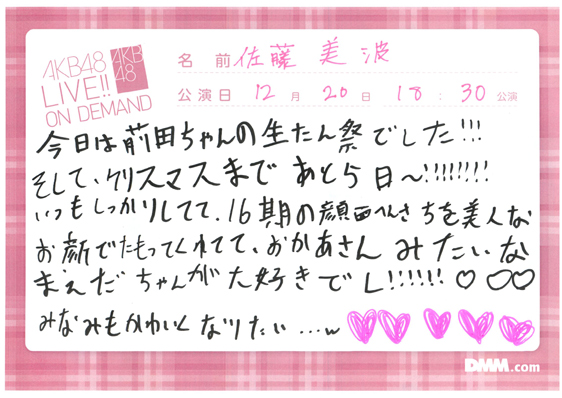 AKB48
LIVE!!
ON DEMAND
AKB
48
名前 佐藤美波
公演日 12月20日 18:30公演
今日は前田ちゃんの生たん祭でした!!!
そして、クリスマスまであと5日〜!!!!!!!!
いつもしっかりしてて、16期の顔面へんさちを美人な
お顔でたもってくれてて、おかあさんみたいな
まえだちゃんが大好きでし!!!!!!♡♡♡
みなみもかわいくなりたい…w
DMM.com